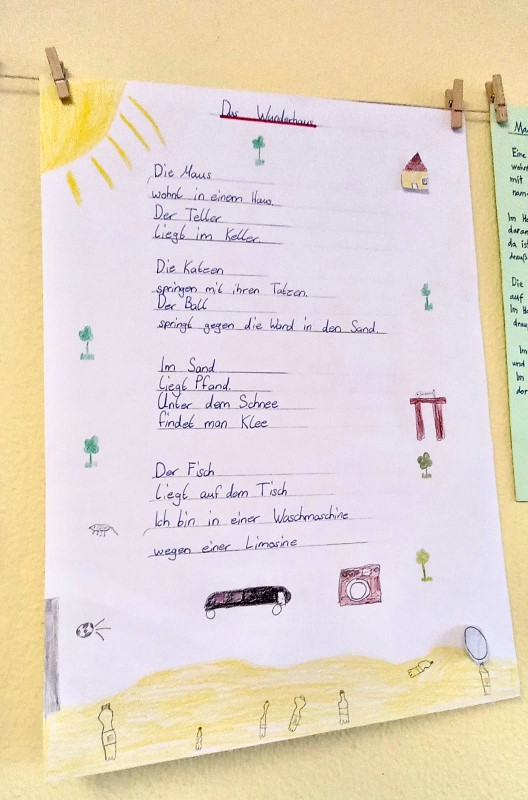 Das Wunderhaus
Die Maus
wohnt in einem Haus.
Der Teller
liegt im Keller.
Die Katzen
springen mit ihren Tatzen.
Der Ball
springt gegen die Wand in den Sand.
Im Sand
liegt Pfand.
Unter dem Schnee
findet man Klee
Der Fisch
liegt auf dem Tisch
Ich bin in einer Waschmaschine
wegen einer Limosine
Ma
Eine
wohnt
mit
nam
Im Ha
daran
da ist
drauß
Die
auf
Im Ha
drau
Im
und
Im
der